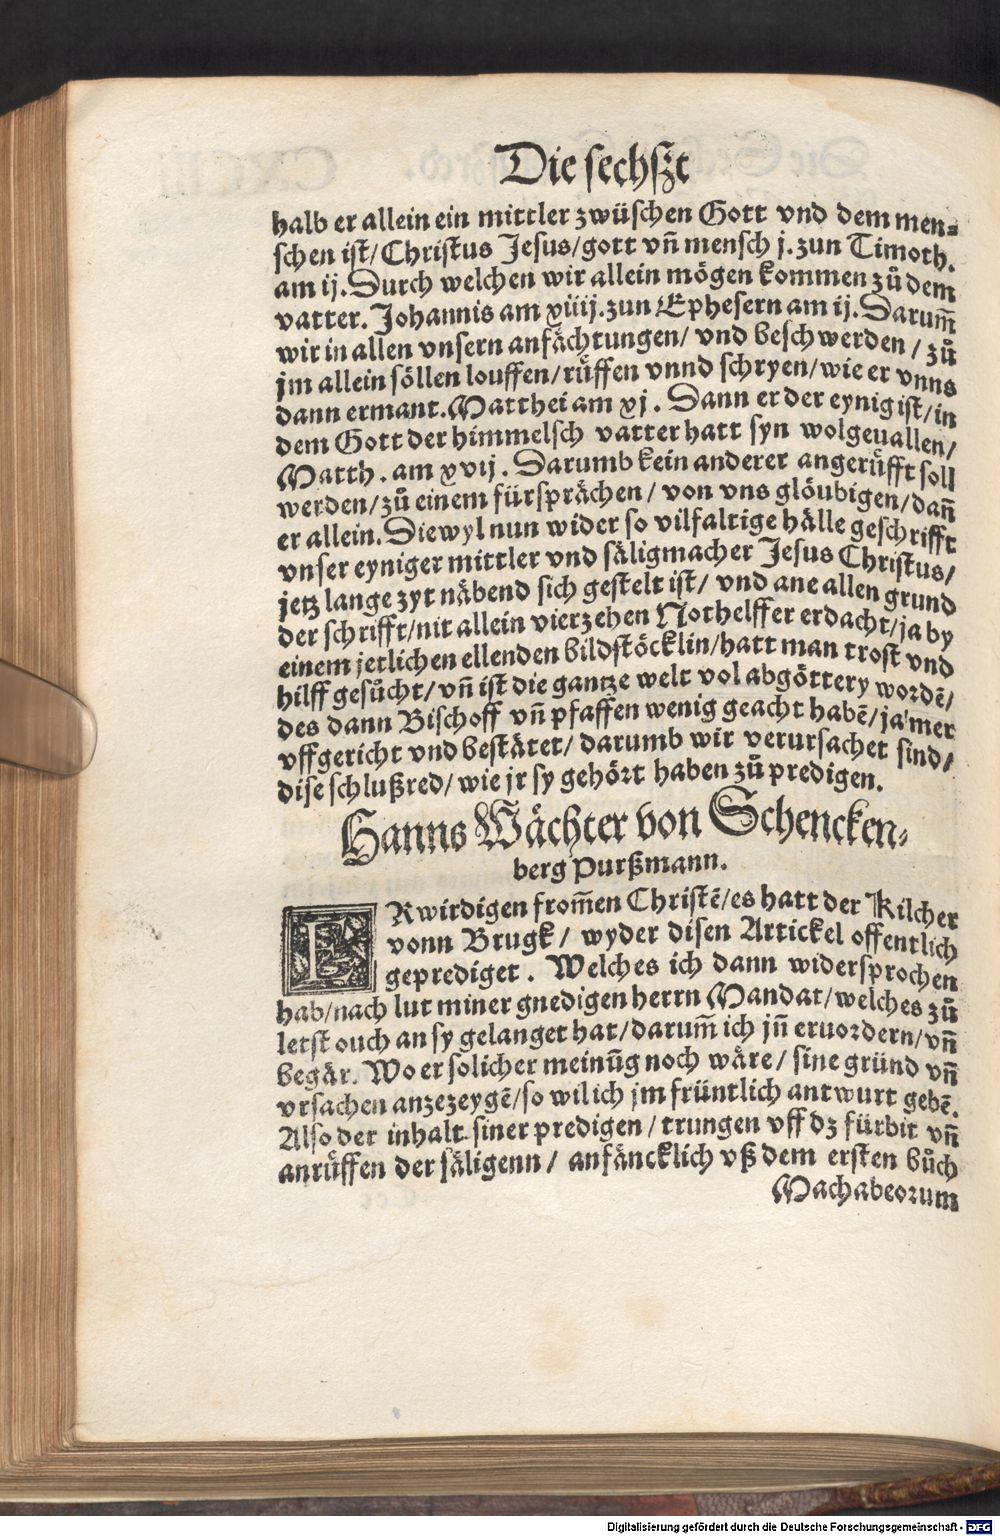 Die sechszt
halb er allein ein mittler zwüschen Gott vnd dem men⸗
schen ist/ Christus Jesus/ gott vñ mensch j. zun Timoth.
am ij. Durch welchen wir allein mögen kommen zů dem
vatter. Johannis am xiiij. zun Ephesern am ij. Darum̃
wir in allen vnsern anfächtungen/ vnd beschwerden/ zů
jm allein söllen louffen/ růffen vnnd schryen/ wie er vnns
dann ermant. Matthei am xj. Dann er der eynig ist/ in
dem Gott der himmelsch vatter hatt syn wolgeuallen/
Matth. am xvij. Darumb kein anderer angerüfft soll
werden/ zů einem fürsprächen/ von vns glöubigen/ dañ
er allein. Diewyl nun wider so vilfaltige hälle geschrifft
vnser eyniger mittler vnd säligmacher Jesus Christus/
jetz lange zyt näbend sich gestelt ist/ vnd ane allen grund
der schrifft/ nit allein vierzehen Nothelffer erdacht/ ja by
einem jetlichen ellenden bildstöcklin/ hatt man trost vnd
hilff gesůcht/ vñ ist die gantze welt vol abgöttery wordẽ/
des dann Bischoff vñ pfaffen wenig geacht habẽ/ ja mer
vffgericht vnd bestätet/ darumb wir verursachet sind/
dise schlußred/ wie jr sy gehört haben zů predigen.
Hanns Wächter von Schencken⸗
berg Purßmann.
ERwirdigen from̃en Christẽ/ es hatt der Kilcher
vonn Brugk/ wyder disen Artickel offentlich
geprediget. Welches ich dann widersprochen
hab/ nach lut miner gnedigen herrn Mandat/ welches zů
letst ouch an sy gelanget hat/ darum̃ ich jñ eruordern/ vñ
begär. Wo er solicher meinũg noch wäre/ sine gründ vñ
vrsachen anzezeygẽ/ so wil ich jm früntlich antwurt gebẽ.
Also der inhalt siner predigen/ trungen vff dz fürbit vñ
anrüffen der säligenn/ anfäncklich vß dem ersten bůch
Machabeorum
Digitalisierung gefördert durch die Deutsche Forschungsgemeinschaft - DFG